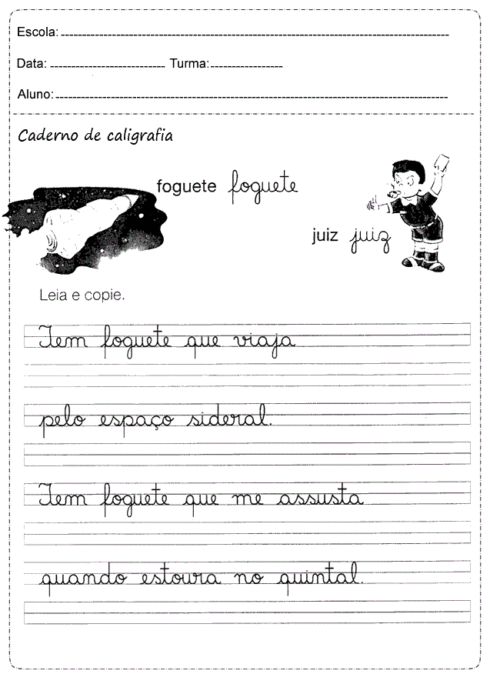 Escola:
Data: Turma:
Aluno:
Caderno de caligrafia
foguete foguete
juiz juiz
Leia e copie.
Tem foguete que viaja
pelo espaço sideral.
Tem foguete que me assusta
quando estoura no quintal.